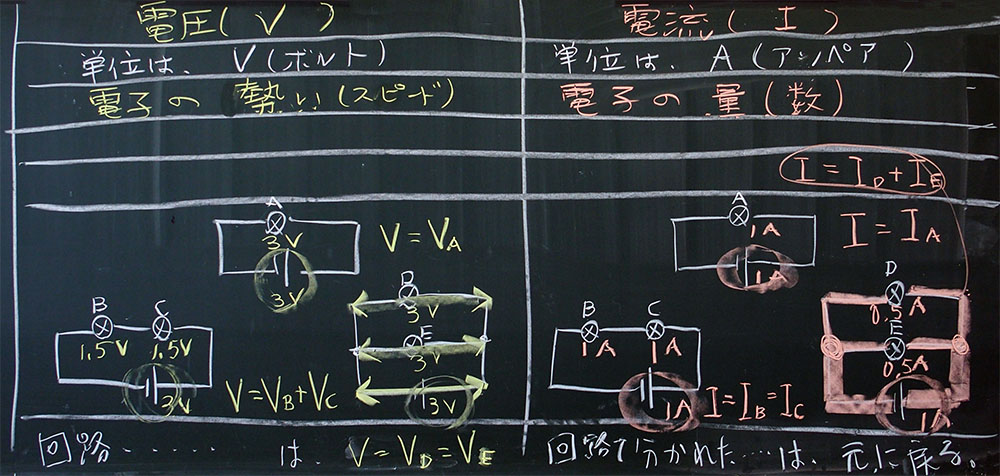 電圧(V)
単位は、V(ボルト)
電子の勢い(スピード)
A
3V
3V
V=VA
B
C
1.5V
1.5V
3V
V=VB+VC
D
3V
E
3V
3V
回路‥‥‥は、V=VD=VE
電流(I)
単位は、A(アンペア)
電子の量(数)
I=ID+IE
A
1A
1A
I=IA
B
C
1A
1A
1A
I=IB=IC
D
0.5A
E
0.5A
1A
回路で分かれた‥‥は、元に戻る。